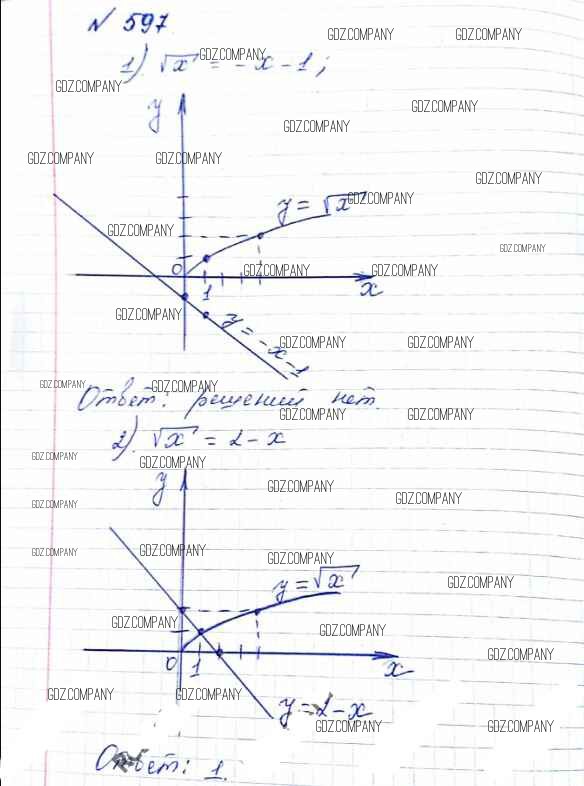 № 597.
GDZ.COMPANY GDZ.COMPANY
1) √x = -x - 1;
GDZ.COMPANY
GDZ.COMPANY
GDZ.COMPANY
y
GDZ.COMPANY
GDZ.COMPANY GDZ.COMPANY
GDZ.COMPANY
y = √x
GDZ.COMPANY
GDZ.COMPANY
GDZ.COMPANY
0
GDZ.COMPANY GDZ.COMPANY
1 x
GDZ.COMPANY
y = -x-1
GDZ.COMPANY GDZ.COMPANY
GDZ.COMPANY GDZ.COMPANY
Ответ: решений нет.
GDZ.COMPANY GDZ.COMPANY
2) √x = 2 - x
GDZ.COMPANY GDZ.COMPANY
y
GDZ.COMPANY
GDZ.COMPANY
GDZ.COMPANY
GDZ.COMPANY GDZ.COMPANY GDZ.COMPANY
y = √x
GDZ.COMPANY
GDZ.COMPANY GDZ.COMPANY
0 1 x
GDZ.COMPANY GDZ.COMPANY GDZ.COMPANY
y = 2 - x
GDZ.COMPANY GDZ.COMPANY
Ответ: 1.